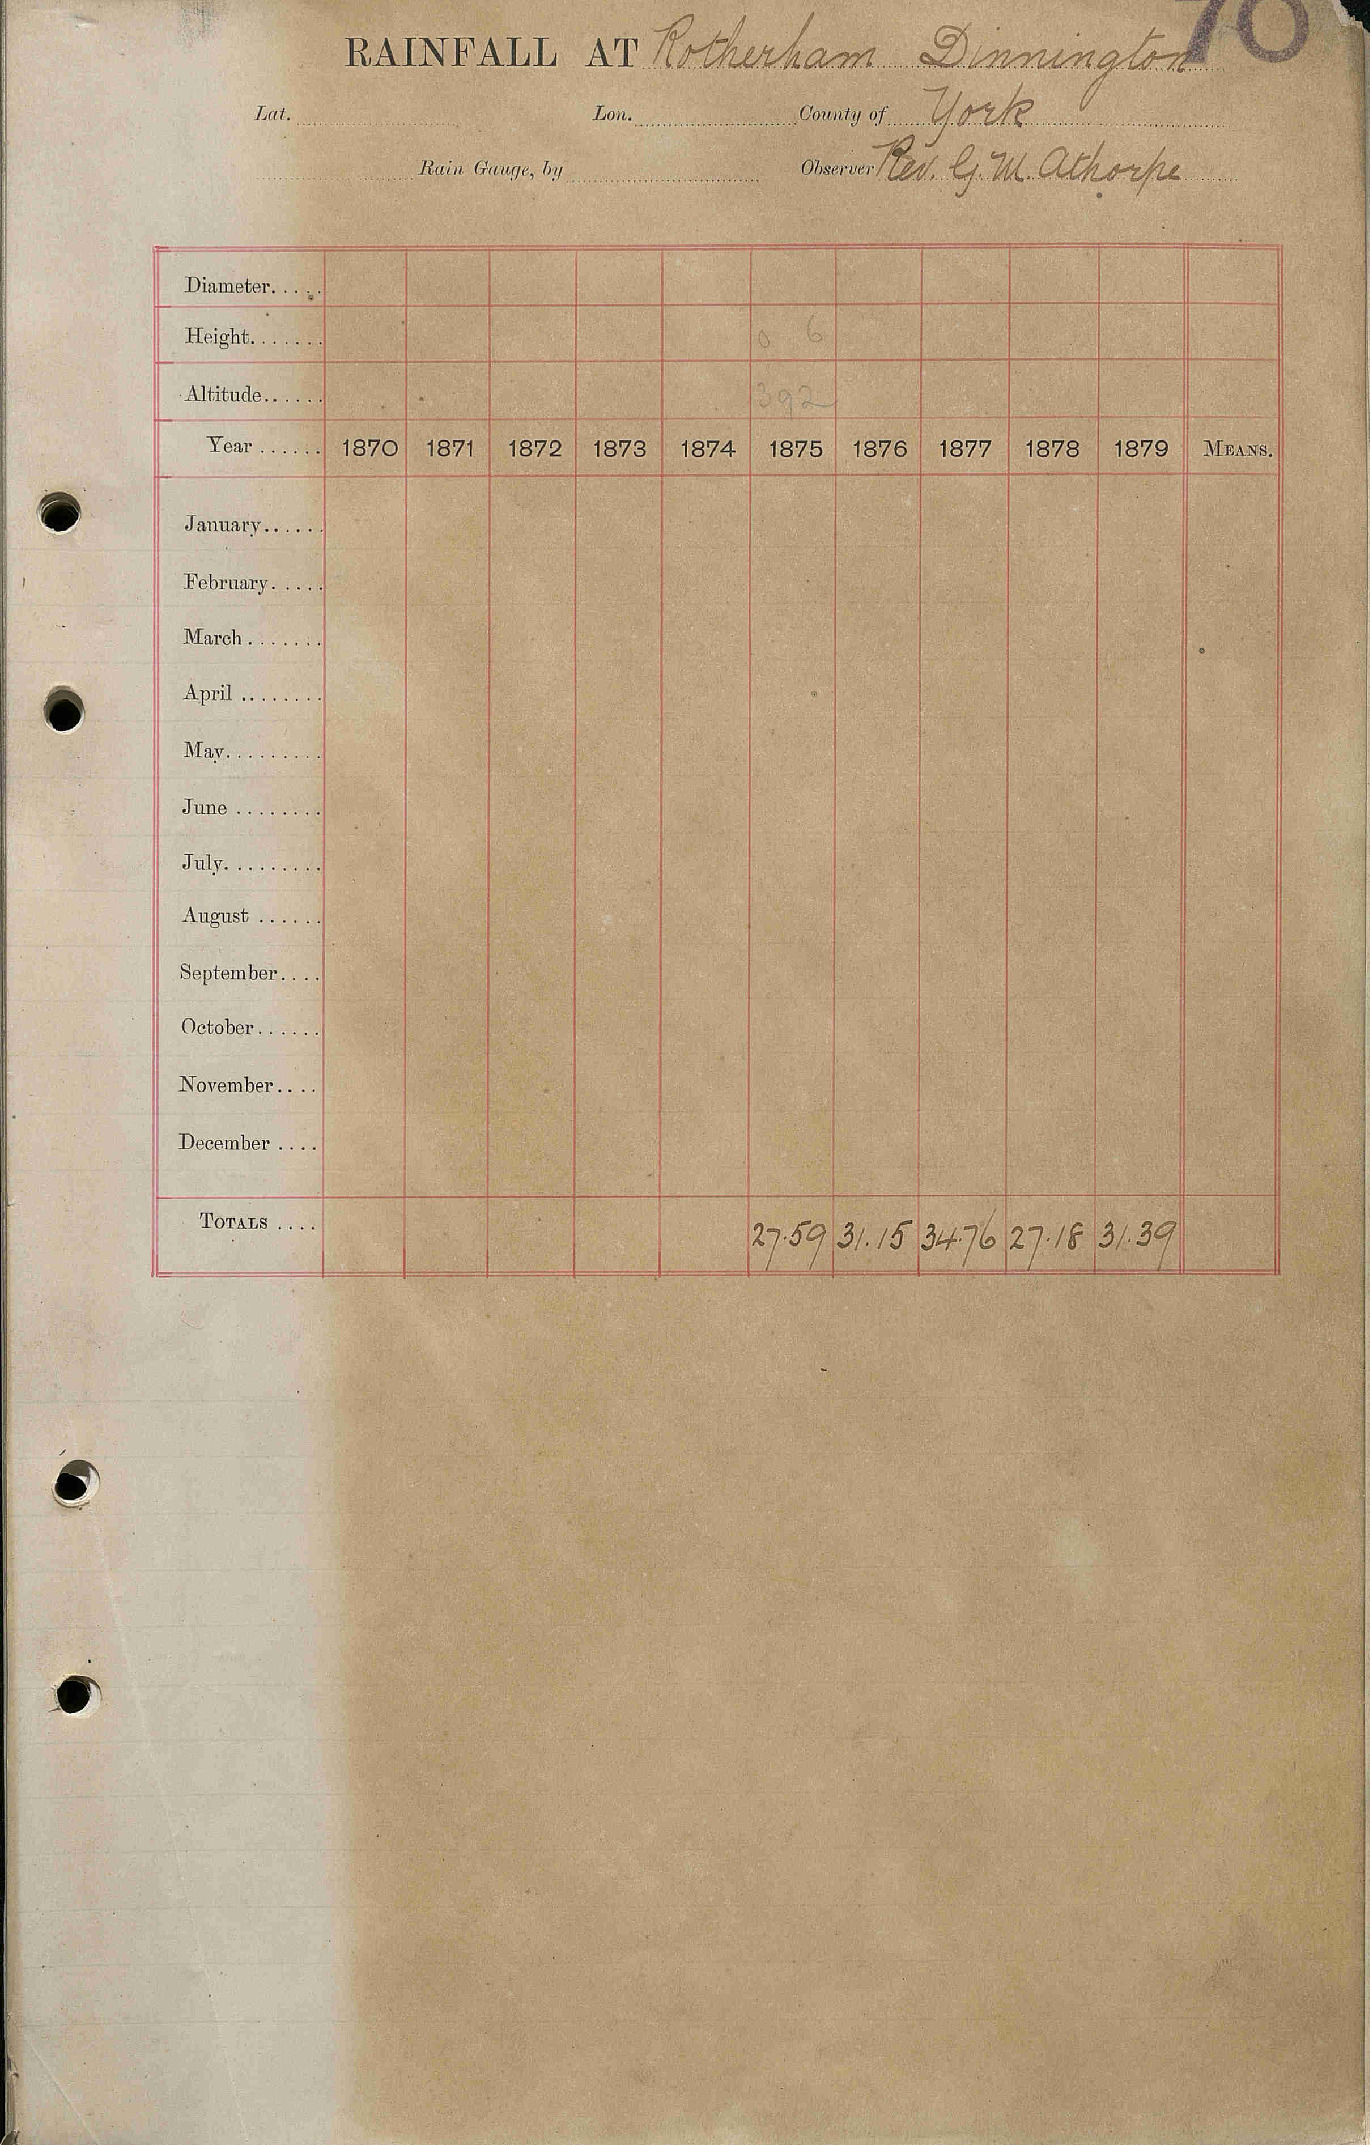 70
RAINFALL AT Rotherham Dinnington
Lat. Lon. County of York
Rain Gauge, by Observer Rev. G. M. Athorpe
Diameter.....
Height....... 0 6
Altitude...... 392
Year ...... 1870 1871 1872 1873 1874 1875 1876 1877 1878 1879 MEANS.
January......
February.....
March .......
April ........
May.........
June ........
July.........
August ......
September....
October......
November....
December ....
TOTALS .... 27.59 31.15 34.76 27.18 31.39